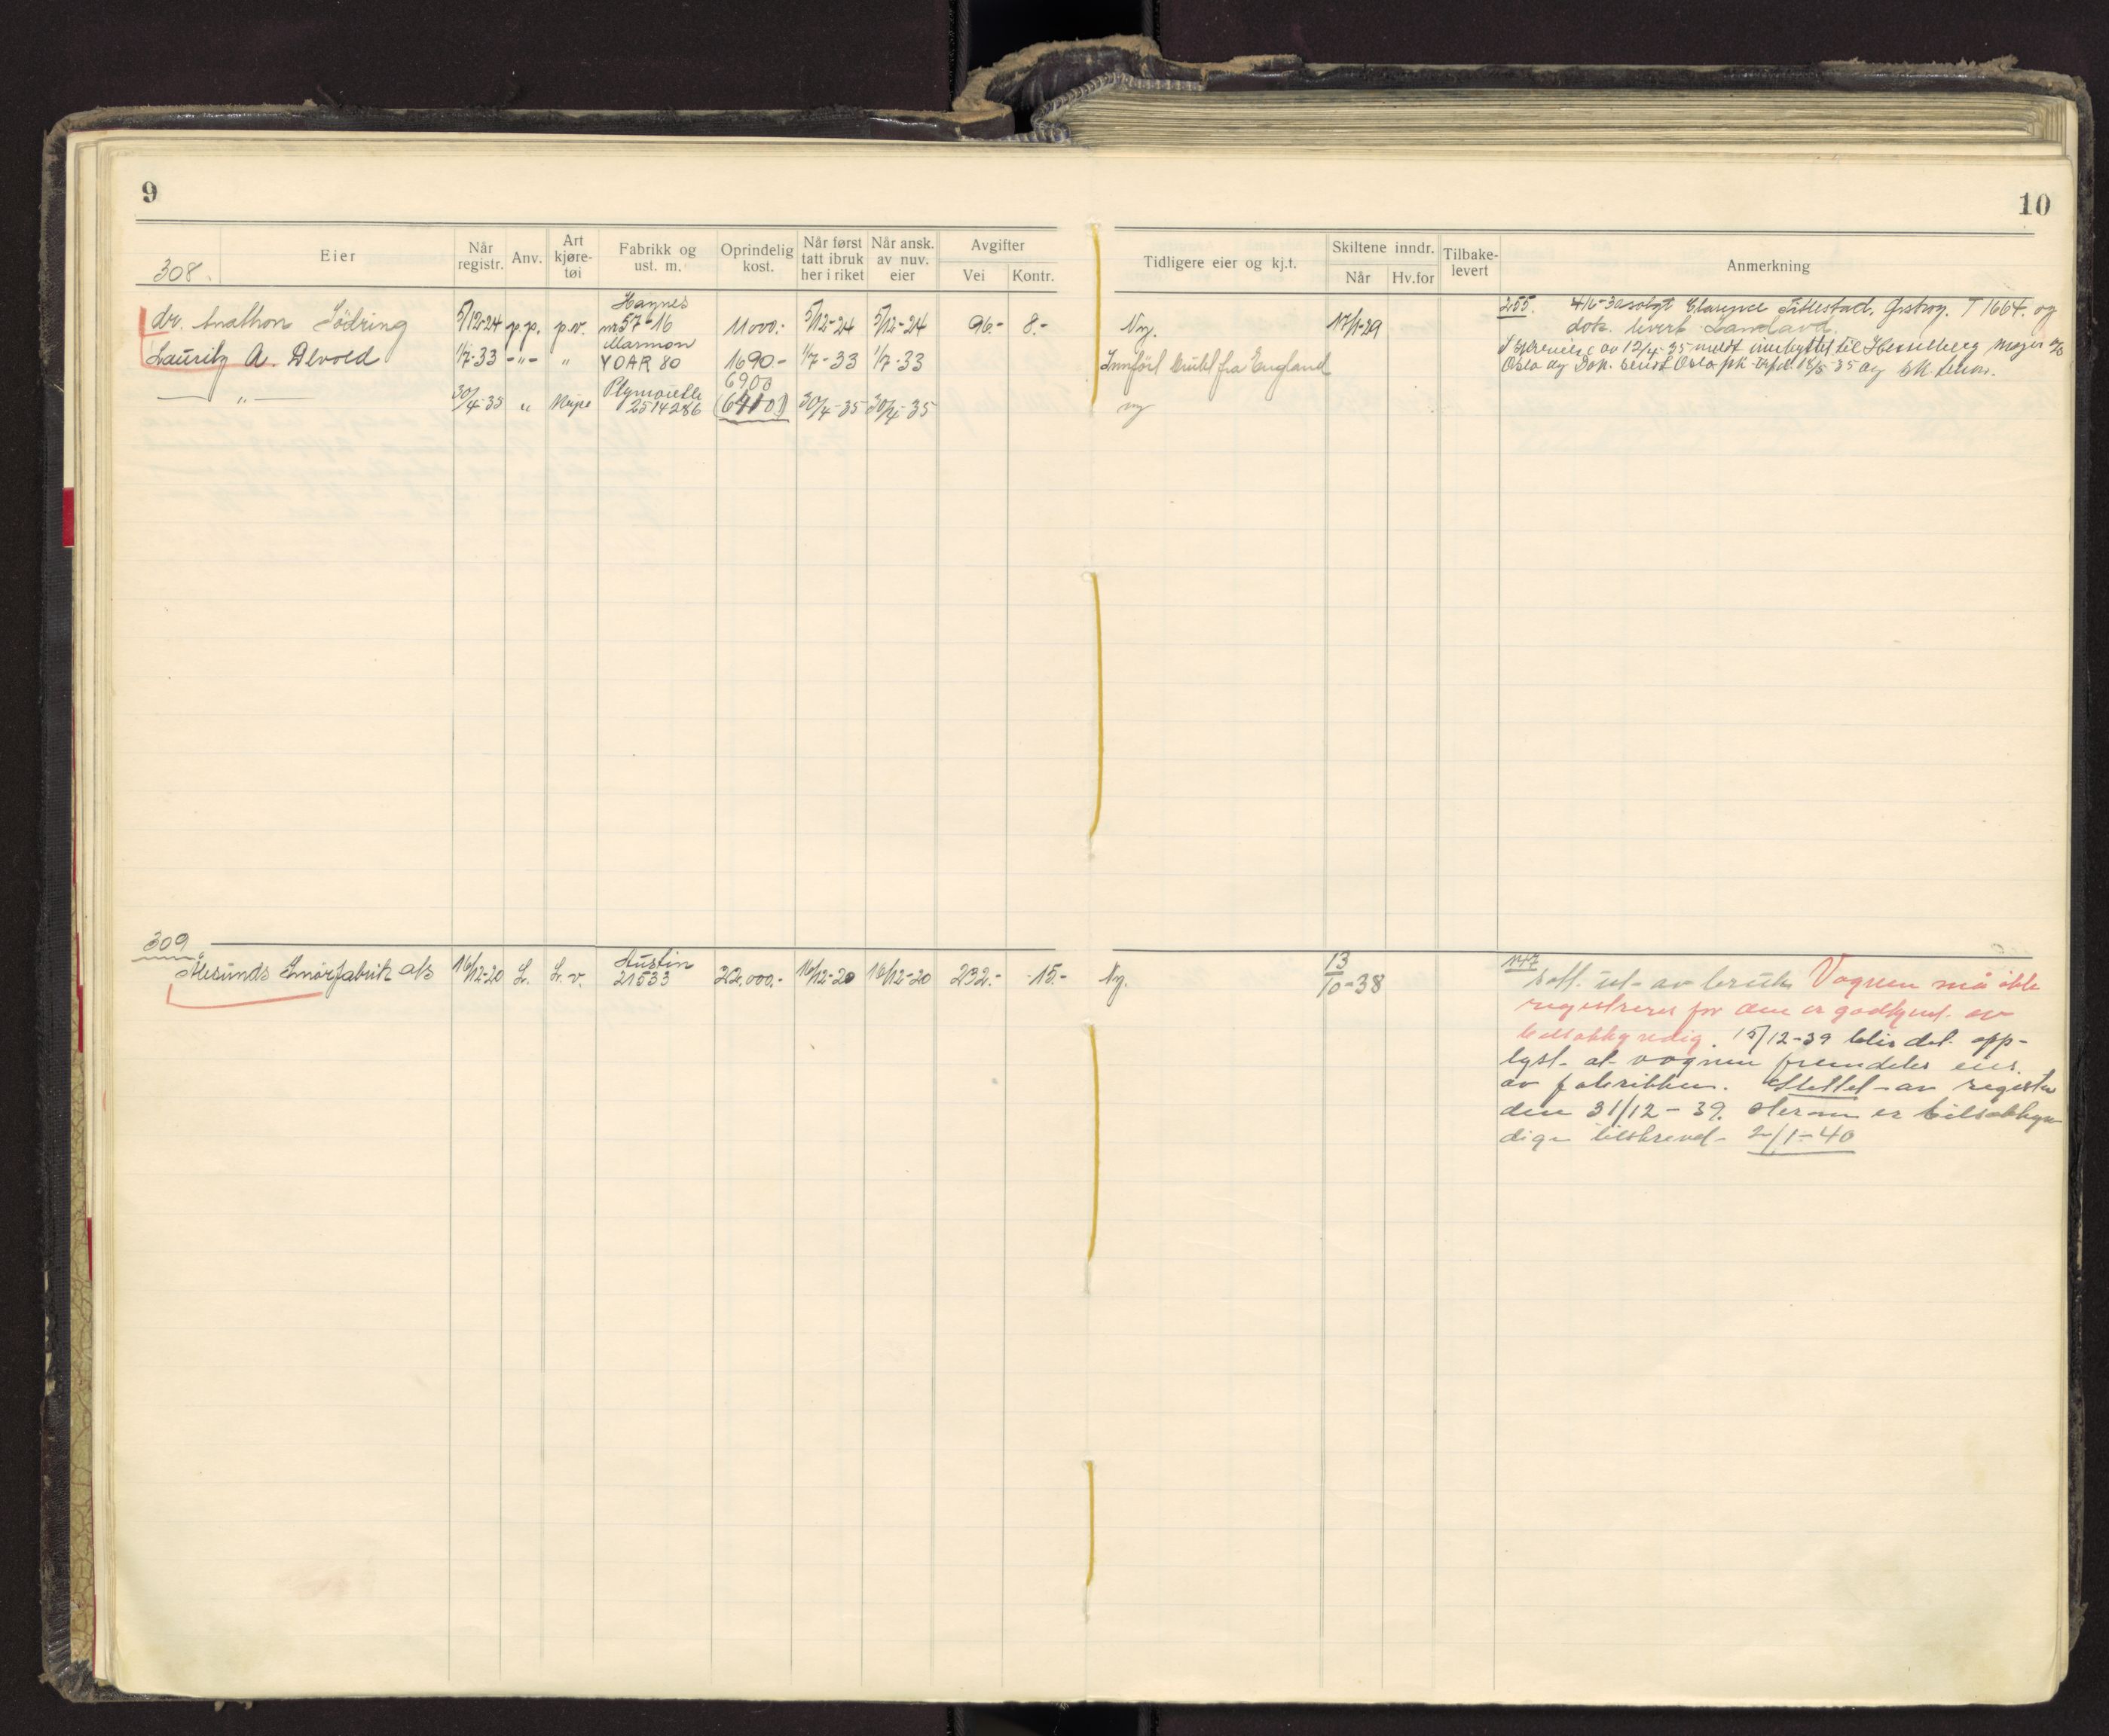 9
10
Eier
Når registr.
Anv.
Art kjøre-tøi
Fabrikk og ust. m.
Oprindelig kost.
Når først tatt ibruk her i riket
Når ansk. av nuv. eier
Avgifter
Vei
Kontr.
Tidligere eier og kj.t.
Skiltene inndr.
Når
Hv.for
Tilbake-levert
Anmerkning
308.
dr. Anathon Södring 5/12-24 p.p. p.v. Haynes m57-16 11000.- 5/12-24 5/12-24 96.- 8.- Ny. 17/1-29
255. 4/6-30 solgt Clarence Tillestad, Ørskog. T 1664. og
dok. levert
Lauritz A. Devold 1/7-33 -"- " Marmon YOAR 80 1690- 1/7-33 1/7-33 Innført brukt fra England
av 12/4-35 meldt innbyttet til Hesselberg
Oslo og Dok. sendt Oslo pk 15/5-35 og
—"— 30/4-35 " Plymouth 2514286 6900 (6410) 30/4-35 30/4-35 ny
309
Ålesunds Smörfabrik a/s 16/12-20 L. L.v. Austin 21533 22.000.- 16/12-20 16/12-20 232.- 15.- Ny. 13/10-38
147
satt ut av bruk Vognen må ikke
registreres før den er godkjent av
bilsakkyndig. 15/12-39 blir det opp-
lyst at vognen fremdeles eies
av fabrikken. Slettet av register
den 31/12-39. Herom er bilsakkyn
dige tilskrevet 2/1-40